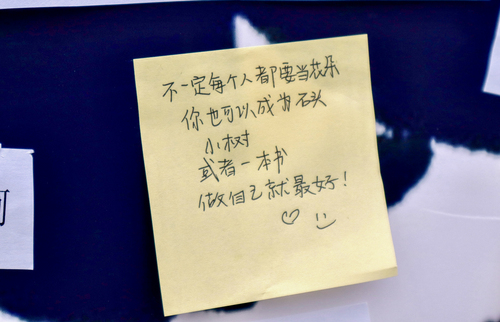 不一定每个人都要当花朵
你也可以成为石头
小树
或者一本书
做自己就最好！